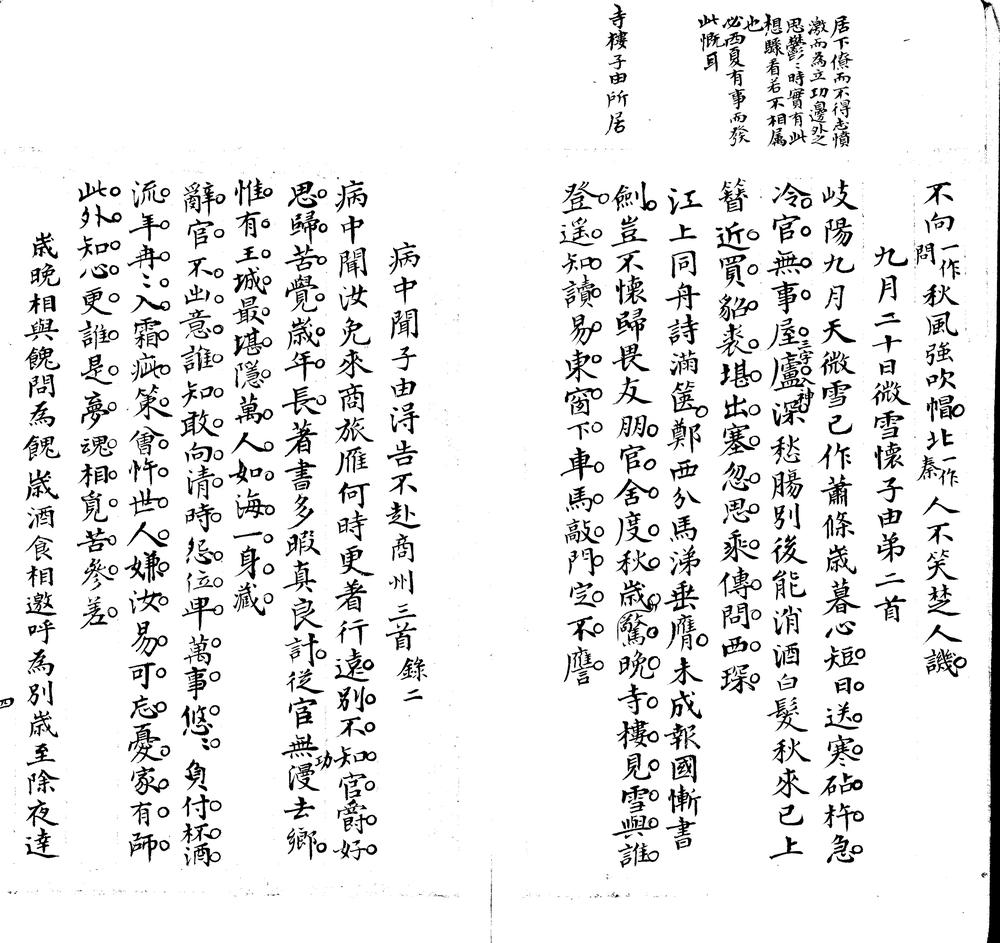 居下僚而不得志憤
激而為立功邊外之
思鬱〻時實有此
想驟看若不相属
也
必西夏有事而發
此慨耳
寺樓子由所居
不向一作問秋風強吹帽北一作秦人不笑楚人譏
九月二十日微雪懷子由弟二首
岐陽九月天微雪已作蕭條歲暮心短日送寒砧杵急
冷官無事屋廬深三字入神愁腸別後能消酒白髮秋來已上
簪近買貂裘堪出塞忽思乘傳問西琛
江上同舟詩滿篋鄭西分馬涕垂膺未成報國慚書
劍豈不懷歸畏友朋官舍度秋歲驚晚寺樓見雪與誰
登遥知讀易東窗下車馬敲門定不譍
病中聞子由得告不赴商州三首錄二
病中聞汝免來商旅雁何時更著行遠別不知官爵好
思歸苦覺歲年長著書多暇真良計從官無功漫去鄉
惟有王城最堪隱萬人如海一身藏
辭官不出意誰知敢向清時怨位卑萬事悠〻負付杯酒
流年冉〻入霜疵策曾忤世人嫌汝易可忘憂家有師
此外知心更誰是夢魂相覓苦參差
歲晚相與餽問為餽歲酒食相邀呼為別歲至除夜達
四